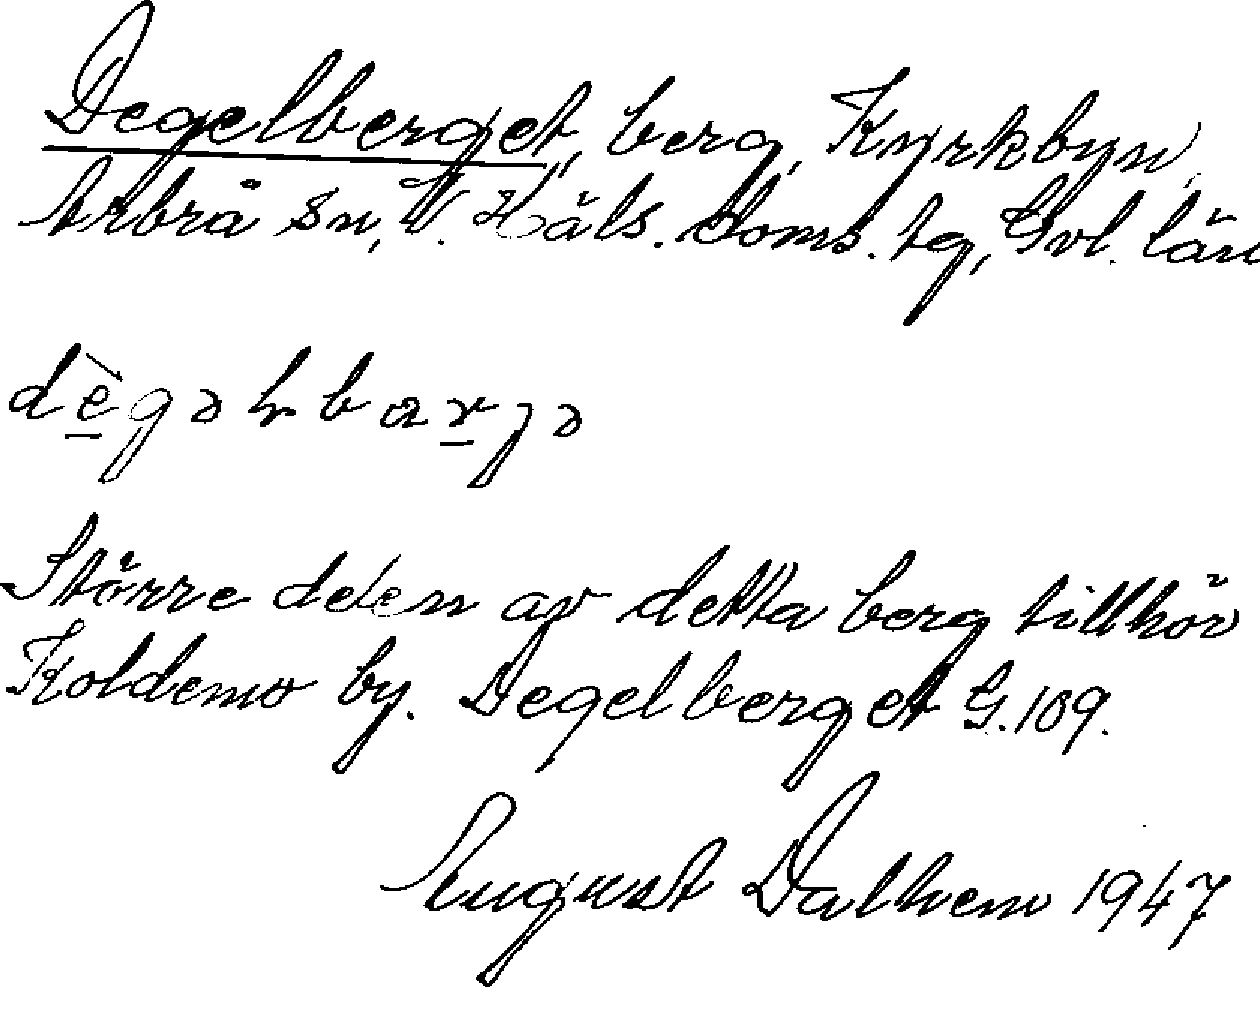 Degelberget, berg, Kyrkbyn,
Arbrå sn, V. Häls. doms. tg, Gvl. län
dègəlbarjə
Större delen av detta berg tillhör
Koldemo by. Degelberget G. 109.
August Dalhem 1947